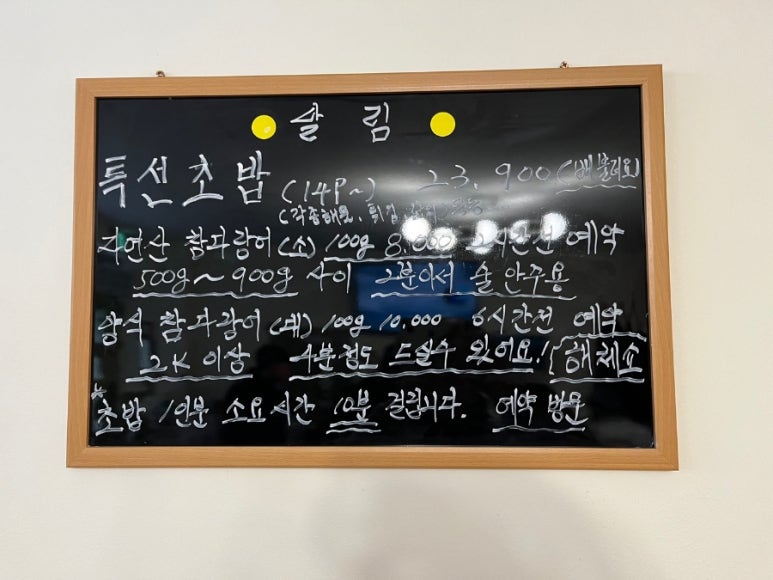 살림
특선초밥 (14P~) 23,900 (배불러요)
(각종해물, 튀김,
자연산 참다랑어(소) 100g 8.000 2시간전 예약
500g~900g 사이 2분이서 술 안주용
양식 참다랑어(대) 100g 10.000 6시간전 예약
2K 이상 4분정도 드실수 있어요! [해체쇼
*초밥 1인분 소요시간 10분 걸립니다. 예약 방문